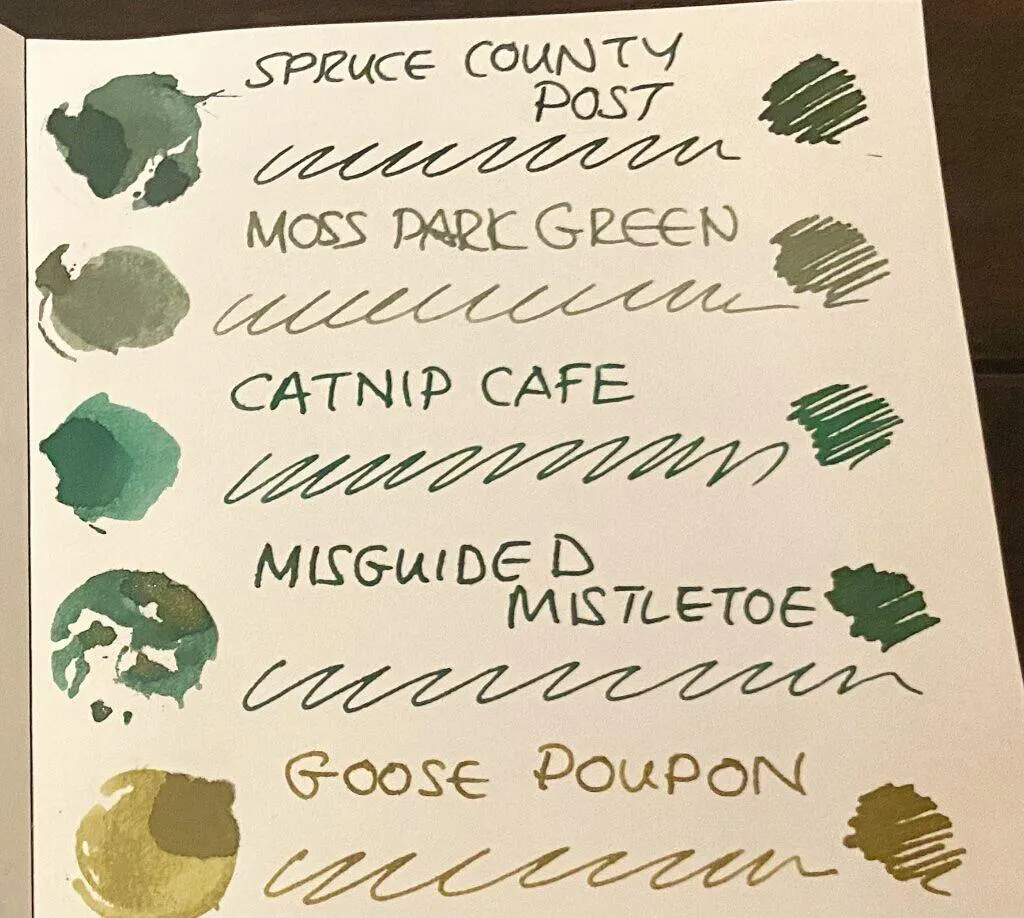 SPRUCE COUNTY
POST
MOSS DARK GREEN
CATNIP CAFE
MISGUIDED
MISTLETOE
GOOSE POUPON